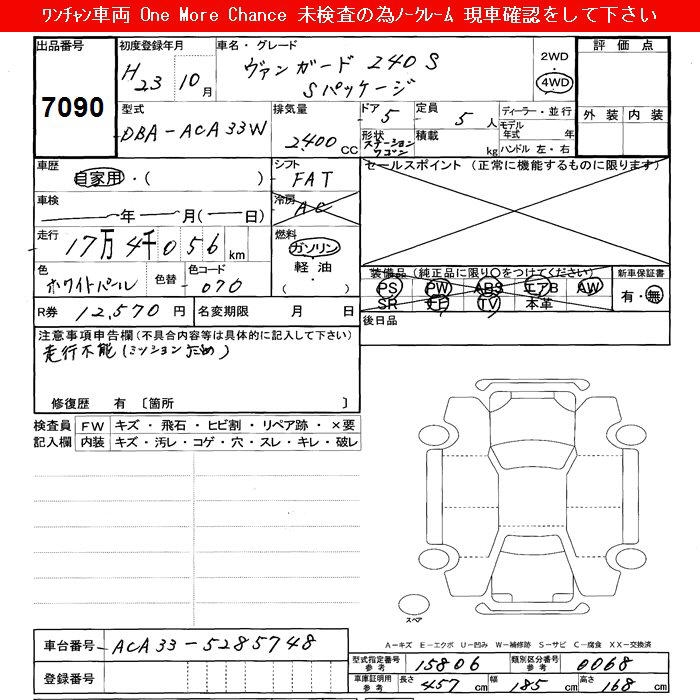 ﾜﾝﾁｬﾝ車両 One More Chance 未検査の為ﾉｰｸﾚｰﾑ 現車確認をして下さい
出品番号 初度登録年月 車名・グレード 評価点
7090 H23 10月 ヴァンガード 240S Sパッケージ 2WD・4WD
外装 内装
型式 排気量 ドア 定員 ディーラー・並行
DBA-ACA33W 2400CC 5 5人 モデル年式 年
形状 ステーションワゴン 積載 kg ハンドル 左・右
車歴 自家用・( ) シフト FAT セールスポイント (正常に機能するものに限ります)
車検 年 月( 日) 冷房 AC
走行 17万4千056km 燃料 ガソリン 軽油・( )
色 ホワイトパール 色替 色コード 070 装備品 (純正品に限り〇をつけてください) 新車保証書
PS PW ABS エアB AW 有・無
SR TV 本革
R券 12,570円 名変期限 月 日 後日品
注意事項申告欄(不具合内容等は具体的に記入して下さい)
走行不能(ミッションだめ)
修復歴 有 〔箇所 〕
検査員 FW キズ・飛石・ヒビ割・リペア跡・×要
記入欄 内装 キズ・汚レ・コゲ・穴・スレ・キレ・破レ
スペア
A−キズ E−エクボ U−凹み W−補修跡 S−サビ C−腐食 XX−交換済
車台番号 ACA33-5285748 型式指定番号参考 15806 類別区分番号参考 0068
登録番号 車庫証明用参考 長さ 457cm 幅 185cm 高さ 168cm